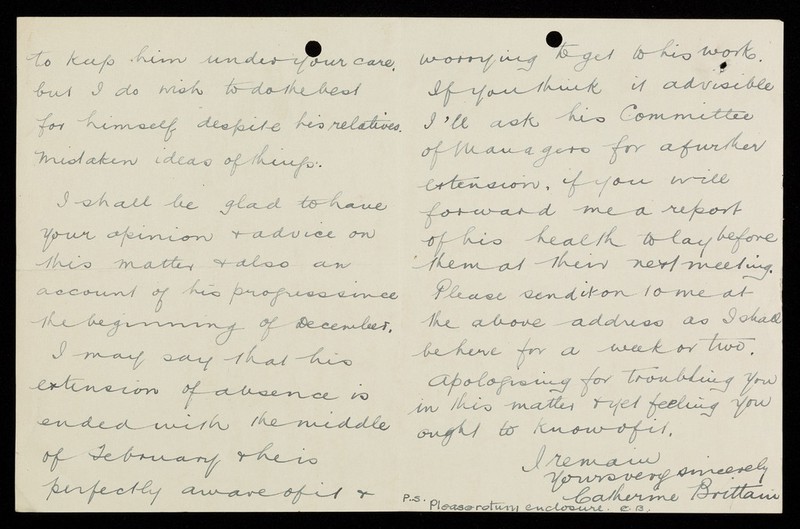 to keep him under your care.
but I do wish to do the best
for himself despite his relatives.
mistaken ideas of things.
I shall be glad to have
your opinion & advice on
this matter & also an
account of his progress since
the beginning of December.
I may say that his
extension of absence is
ended with the middle
of February & he is
perfectly aware of it &
worrying to get to his work.
If you think it advisible
I'll ask his Committee
of Managers for a further
extension, if you will
forward me a report
of his health to lay before
them at their next meeting.
Please send it on to me at
the above address as I shall
be here for a week or two.
Apologising for troubling you
in this matter & yet feeling you
ought to know of it,
I remain
Yours very sincerely
Catherine Brittain
P.S. Please return enclosure. C.B.